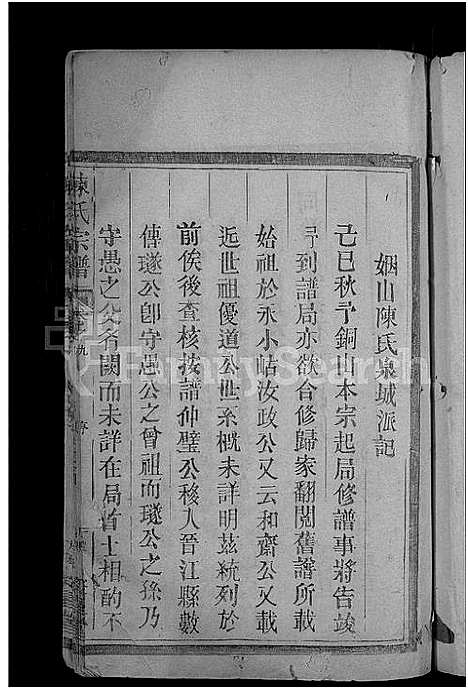 姻山陳氏泉城派記
己巳秋予銅山本宗起局修譜事將告竣
予到譜局亦欲合修歸家翻閱舊譜所載
始祖於永小岵汝政公又云和齋公又載
近世祖優道公世系槪未詳明茲統列於
前俟後查核按譜仲璧公移入晉江縣數
傳璲公卽守愚公之曾祖而璲公之孫乃
守愚之父名闕而未詳在局首士相酌不
陳氏宗譜
FamilySearch